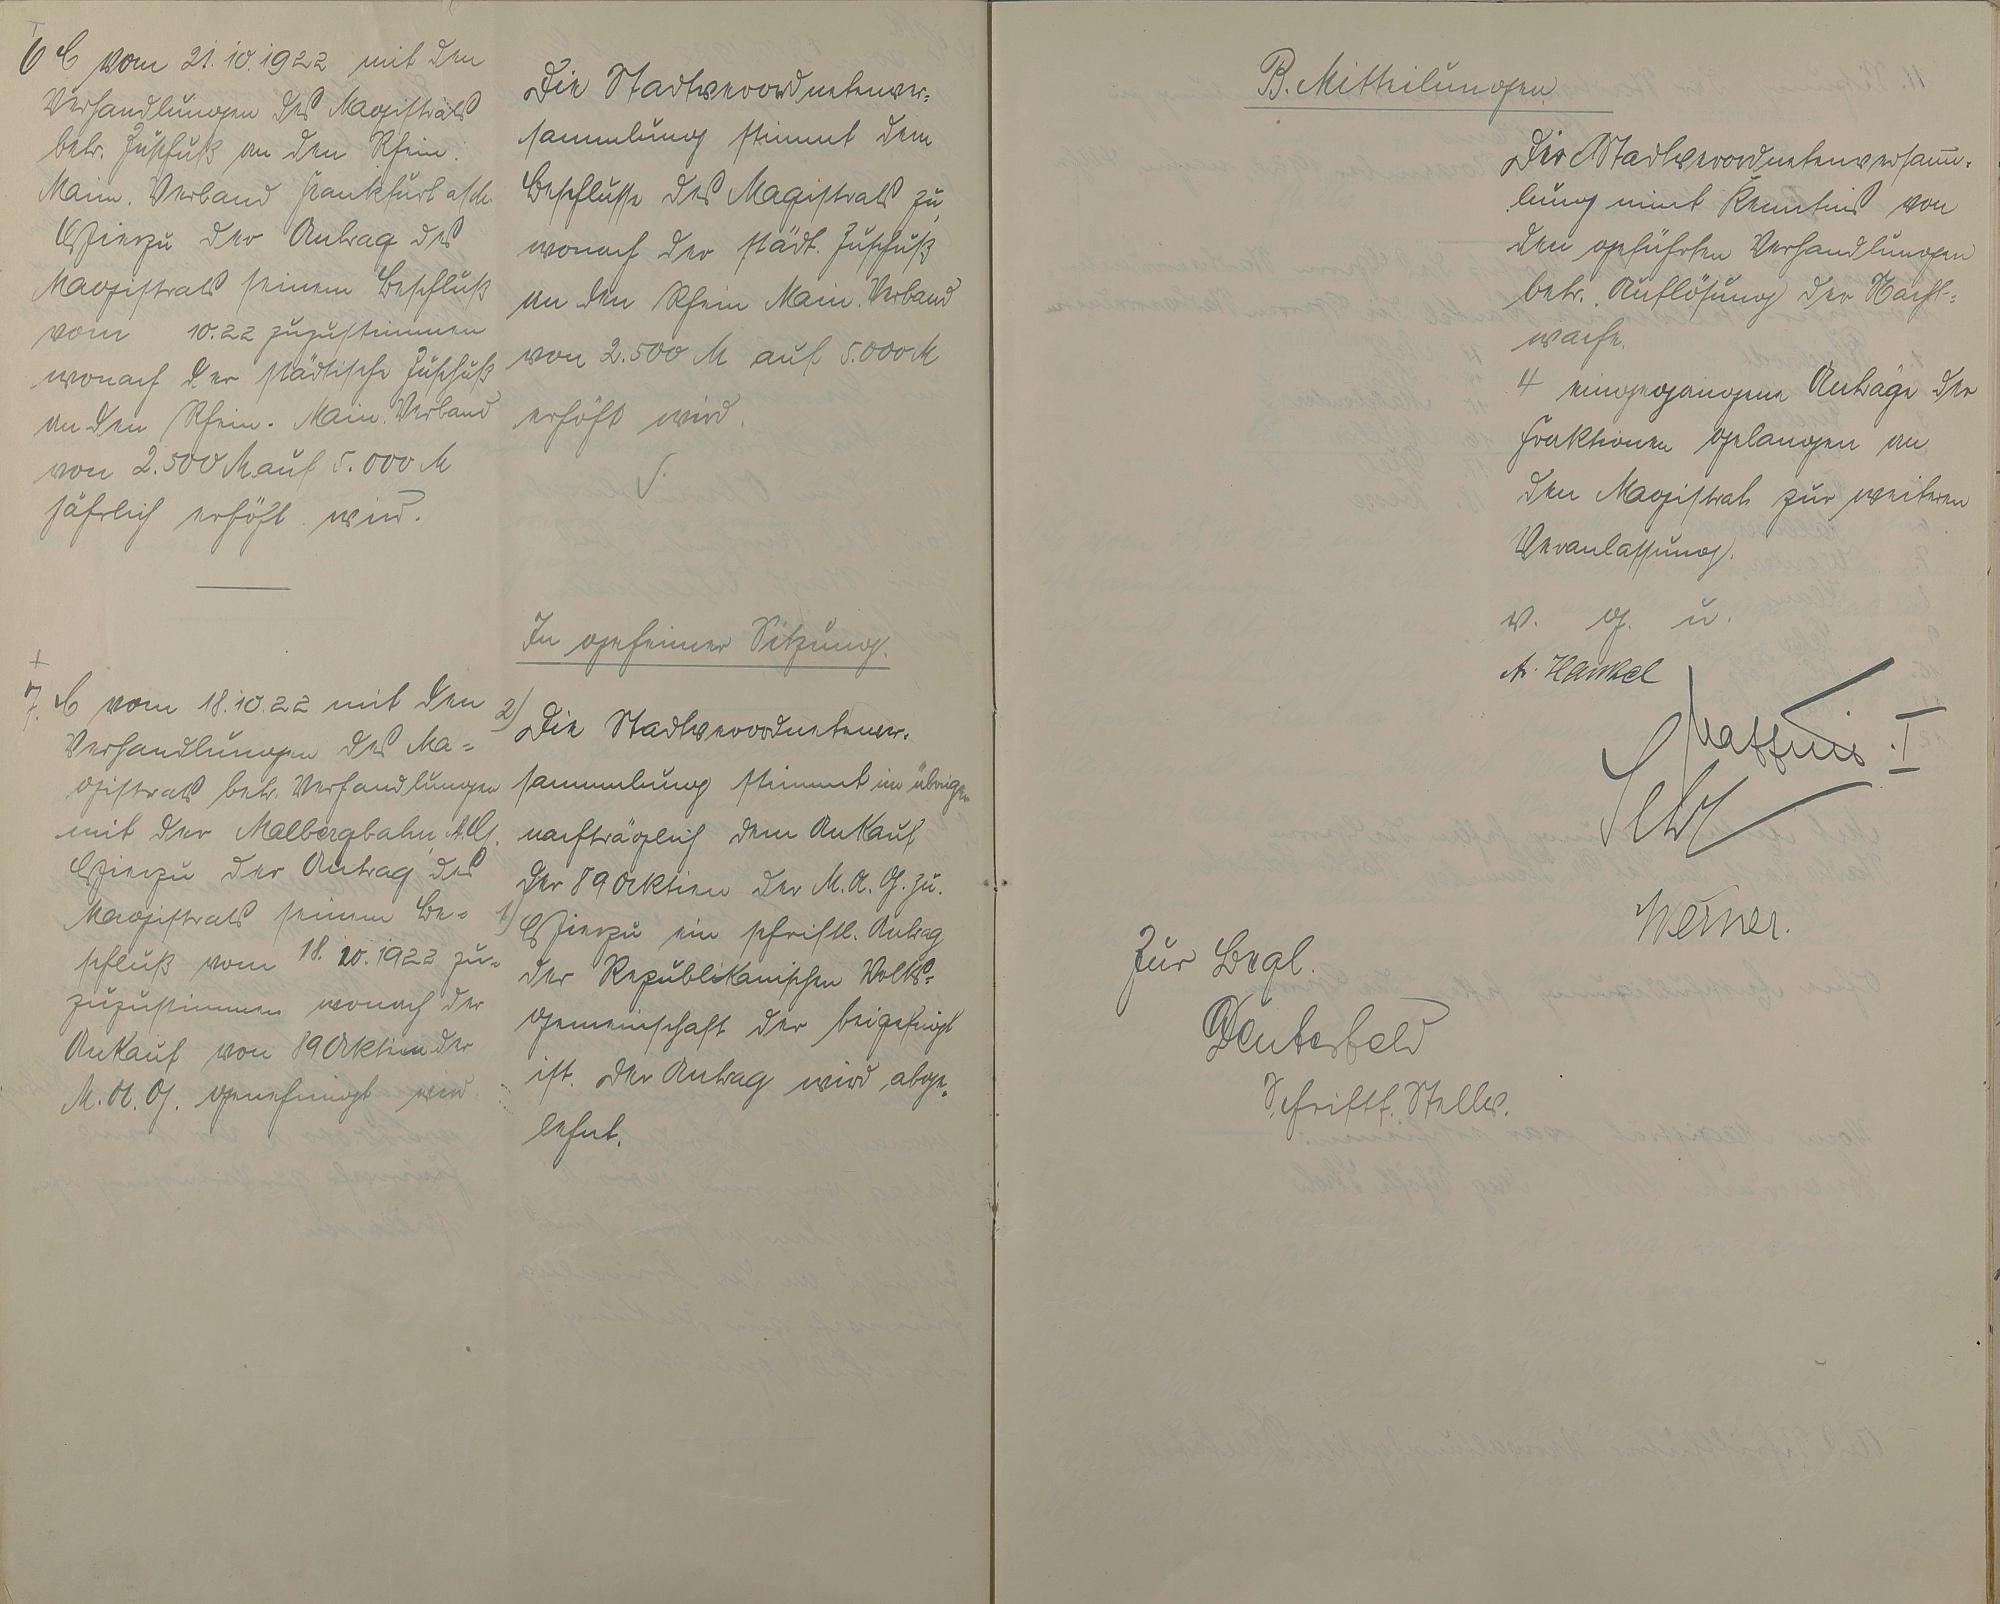 6 C vom 21.10.1922 mit den
Verhandlungen des Magistrats
betr. Zuschuß an den Rhein.
Main. Verband Frankfurt
Hierzu der Antrag des
Magistrats seinem Beschluß
vom 10.22 zuzustimmen
wonach der städtische Zuschuß
an den Rhein. Main. Verband
von 2.500 M auf 5.000 M
jährlich erhöht wird.
Die Stadtverordnetenver=
sammlung stimmt dem
Beschlusse des Magistrats zu,
wonach der städt. Zuschuß
an den Rhein Main. Verband
von 2.500 M auf 5.000 M
erhöht wird.
In geheimer Sitzung.
7. C vom 18.10.22 mit den
Verhandlungen des Ma=
gistrats betr. Verhandlungen
mit der Malbergbahn A.G.
Hierzu der Antrag des
Magistrats seinem Be=
schluß vom 18.10.1922 zu=
zuzustimmen wonach der
Ankauf von 89 Aktien der
M.A.G. genehmigt wird
2) Die Stadtverordnetenver.
sammlung stimmt im übrigen
nachträglich dem Ankauf
der 89 Aktien der M.A.G. zu.
1) Hierzu ein schriftl. Antrag
der Republikanischen Volks=
gemeinschaft der beigefügt
ist. Der Antrag wird abge=
lehnt.
B. Mitteilungen
Die Stadtverordnetenversamm=
lung nimt Kenntnis von
den geführten Verhandlungen
betr. Auflösung der Nacht=
wache.
4 eingegangene Anträge der
Fraktionen gelangen an
den Magistrat zur weiteren
Veranlassung.
v. g. u.
A. Hankel
Matthis I
Werner.
Zur Begl.
Deuterfeld
Schriftf. Stellv.